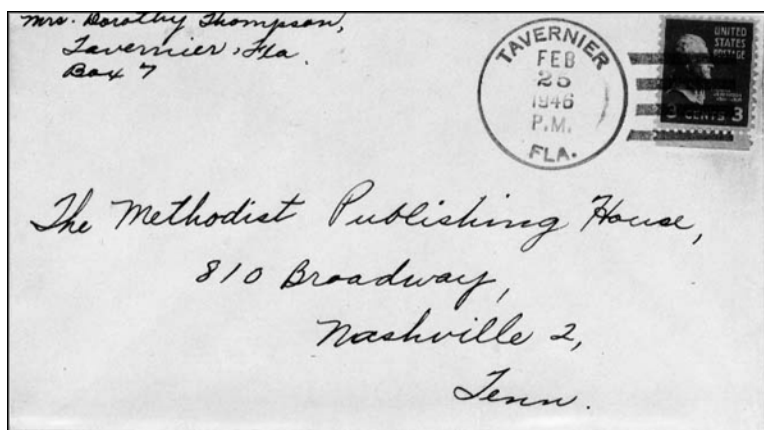 Mrs. Dorothy Thompson,
Tavernier, Fla.
Box 7
TAVERNIER
FEB
25
1946
P.M.
FLA.
UNITED
STATES
POSTAGE
3 CENTS 3
The Methodist Publishing House,
810 Broadway,
Nashville 2,
Tenn.